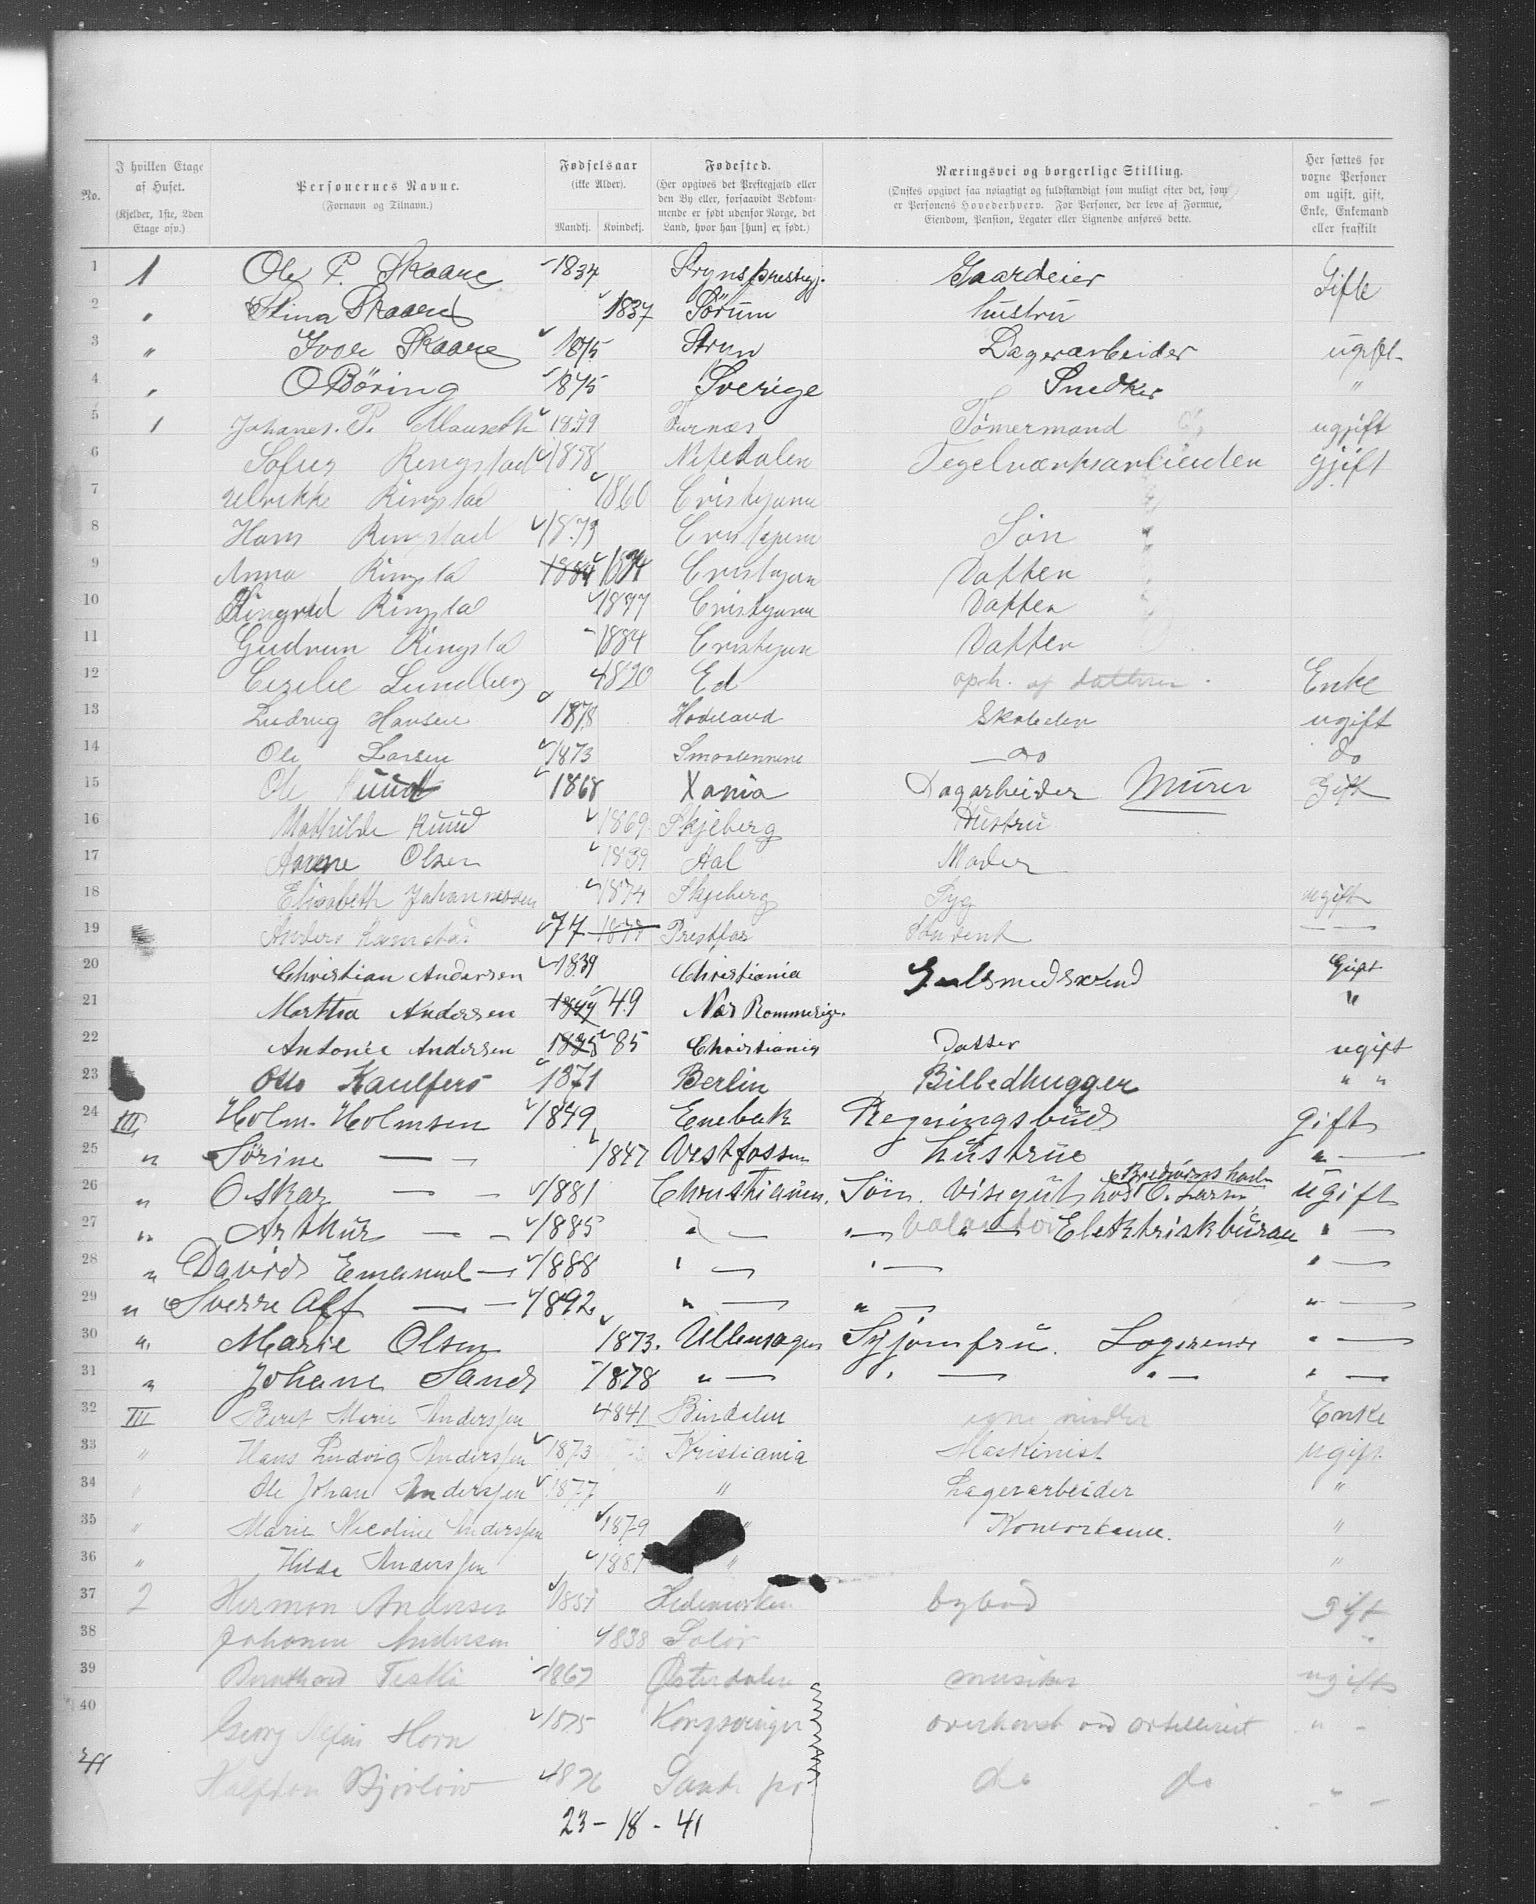 No. I hvilken Etage af Huset. (Kjelder, 1ste, 2den Etage osv.) Personernes Navne. (Fornavn og Tilnavn.) Fødselsaar (ikke Alder). Mandkj. Kvindekj. Fødested. (Her opgives det Prestegjæld eller den By eller, forsaavidt Vedkommende er født udenfor Norge, det Land, hvor han [hun] er født.) Næringsvei og borgerlige Stilling. (Ønskes opgivet saa nøiagtigt og fuldstændigt som muligt efter det, som er Personens Hovederhverv. For Personer, der leve af Formue, Eiendom, Pension, Legater eller Lignende anføres dette. Her sættes for voxne Personer om ugift, gift, Enke, Enkemand eller fraskilt
1 1 Ole P. Skaare 1834 Strynsprestegj. Gaardeier Gifte
2 " Stina Skaare 1837 Sørum hustru
3 " Ivar Skaare 1875 Stryn Lagerarbeider ugift
4 " O Böring 1875 Sverige Snedker "
5 1 Johanes. P. Mauseth 1879 Furnæs Tømermand ugjift
6 Sofus Ringstad 1858 Nitedalen Tegelværksarbeiden gjift
7 Ulrikke Ringstad 1860 Cristyana
8 Hans Ringstad 1879 Cristyana Søn
9 Anna Ringsta 1884 1874 Cristyana Datter
10 Ringsta 1877 Cristyana Datter
11 Gudrun Ringsta 1884 Cristyana Datter
12 Cezelie Lundberg 1820 Ed oph. af datteren. Enke
13 Ludvig Hansen 1878 Hadeland Skoleelev ugift
14 Ole Larsen 1873 Smaalennene do do
15 Ole Ruud 1868 Xania Dagarbeider Murer Gift
16 Mathilde Ruud 1869 Skjeberg Hustru
17 Anne Olsen 1839 Hal Moder
18 Elisabeth Johannessen 1874 Skjeberg Syg ugift
19 Anders 77 Student
20 Christian Andersen 1839 Christiania Gulsmedsvend Gift
21 Martha Andersen 1849 49 Nes Rommerige. "
22 Antonie Andersen 1885 85 Christiania Datter ugift
23 Otto Kaulfers 1871 Berlin Billedhugger " "
24 III Holm. Holmsen 1849 Enebak Regningsbud gift
25 " Sörine — - 1847 Vestfossen hustrue " —
26 " Oskar — - 1881 Christianien. Søn. Visegut hos O. Larsen ugift
27 " Arthur — - 1885 " — " — Elektriskbureau " —
28 " David Emanuel — 1888 " — " — " —
29 " Sverre Alf — - 1892 " — " — " —
30 " Marie Olsen 1873. Ullensager Syjomfru. Logerende " —
31 " Johane Sand 1878 " — " — " — " —
32 III Berit Marie Anderssen 1841 Bindalen egne midler Enke
33 " Hans Ludvig Anderssen 1873 Kristiania Maskinist ugift
34 " Ole Johan Anderssen 1877 " Lagerarbeider "
35 " Marie Nicoline Anderssen 1879 " Kontordame. "
36 " Hilda Anderssen 1881 " "
37 2 Herman Andersen 1857 Hedemarken bybud gift
38 Johanne Andersen 1838 Solør "
39 Bernthard 1867 Østerdalen musiker ugift
40 Georg Horn 1875 Kongsvinger ved artilleriet " -
41 Halfdan Bjørlow 1876 do do " -
23 - 18 - 41